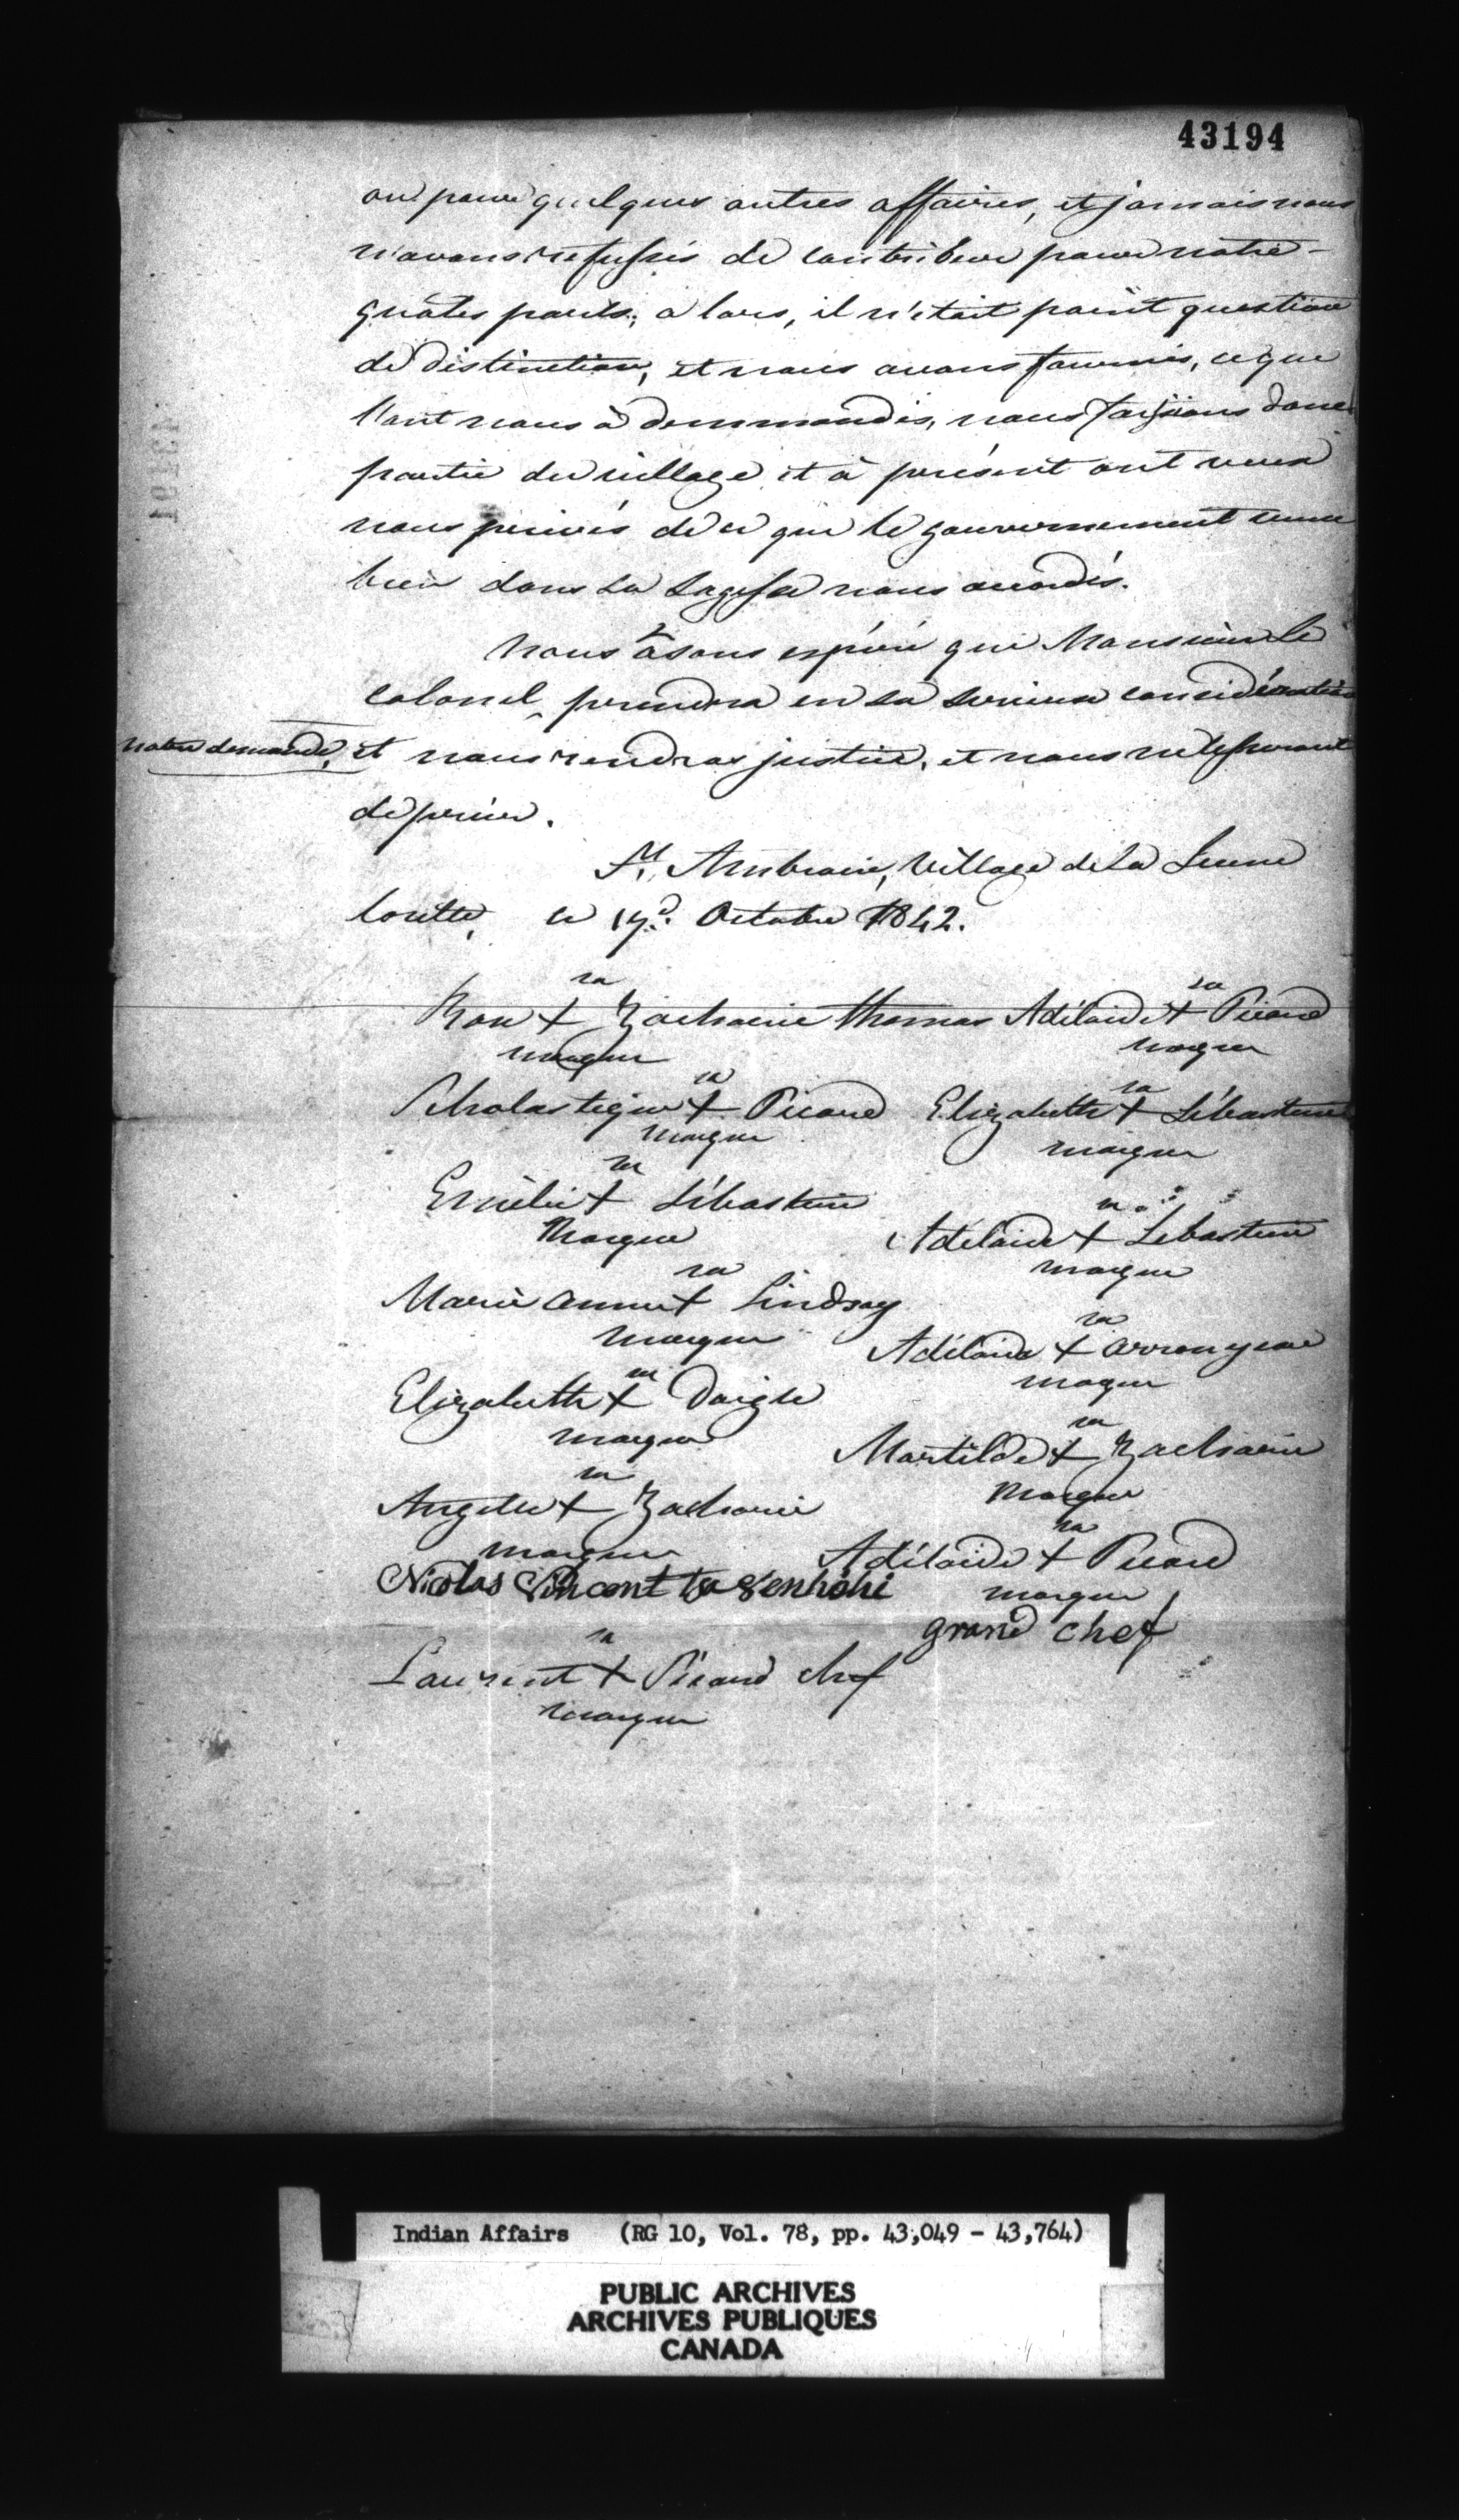 43194
ou pour quelques autres affaires, et jamais nous
n'avons refussés de contribuer pour notre
quâtes parts; a lors, il n'était point question
de distinction, et nous avons fournis, ce que
l'ont nous à demmandés, nous faisions donc
partie du village et à présent ont veux
nous privés de ce que le gouvernement
bien dans sa sagesse nous accordés.
Nous osons espéré que Monsieur le
colonel, prendra en sa serieuse considération
notre demande, et nous rendras justice, et nous ne cesseront
de prier.
St. Ambroise, Village de la Jeune
lorette, ce 17d. Octobre 1842.
sa sa
+ Zacharie Thomas Adélaide + Picard
marque marque
sa sa
Scholastique + Picard Elizabeth + Sébastien
marque marque
sa
Emélie + Sébastien
marque
sa
Adélaide + Sébastien
marque
sa
Marie anne + Lindsay
marque
sa
Adélaide + arronyeou
marque
sa
Elizabeth + Daigle
marque
sa
Martilde + Zacharie
marque
sa
Angele + Zacharie
marque
sa
Adélaide + Picard
marque
Nicolas Vincent tsa8enhohi
grand chef
sa
Laurent + Picard chef
marque
Indian Affairs (RG 10, Vol. 78, pp. 43,049 - 43,764)
PUBLIC ARCHIVES
ARCHIVES PUBLIQUES
CANADA